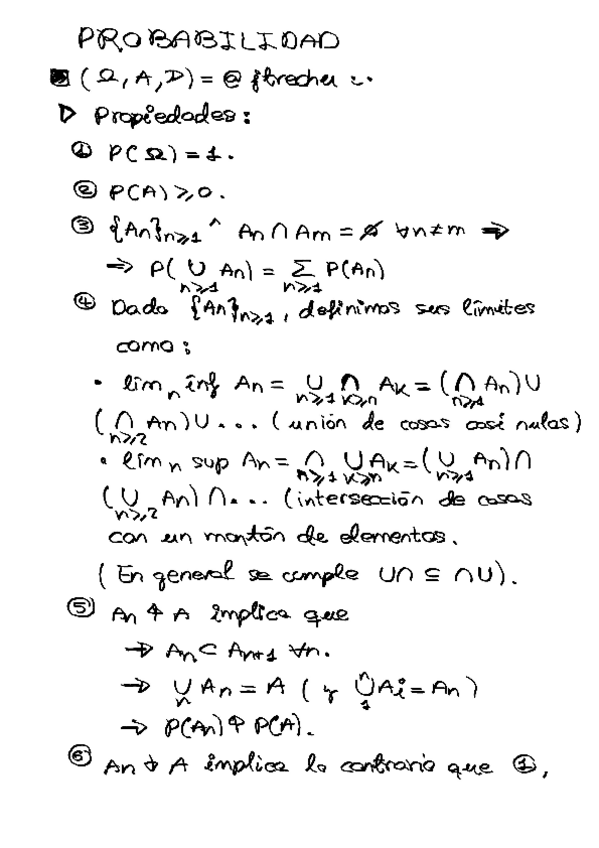 PROBABILIDAD
(Ω, A, P) = @ jtrecher :.
▷ Propiedades:
① P(Ω) = 1.
② P(A) ≥ 0.
③ {An}n≥1 ^ An ∩ Am = ∅ ∀n≠m ⇒
⇒ P(∪n≥1 An) = Σn≥1 P(An)
④ Dado {An}n≥1, definimos sus límites
como:
• limn inf An = ∪n≥1 ∩k≥n Ak = (∩n≥1 An) ∪
(∩n≥2 An) ∪ ... (unión de cosas casi nulas)
• limn sup An = ∩n≥1 ∪k≥n Ak = (∪n≥1 An) ∩
(∪n≥2 An) ∩ ... (intersección de cosas
con un montón de elementos.
(En general se cumple ∪∩ ⊆ ∩∪).
⑤ An ↑ A implica que
→ An ⊂ An+1 ∀n.
→ ∪n An = A (y ∪1n Ai = An)
→ P(An) ↑ P(A).
⑥ An ↓ A implica lo contrario que ①,